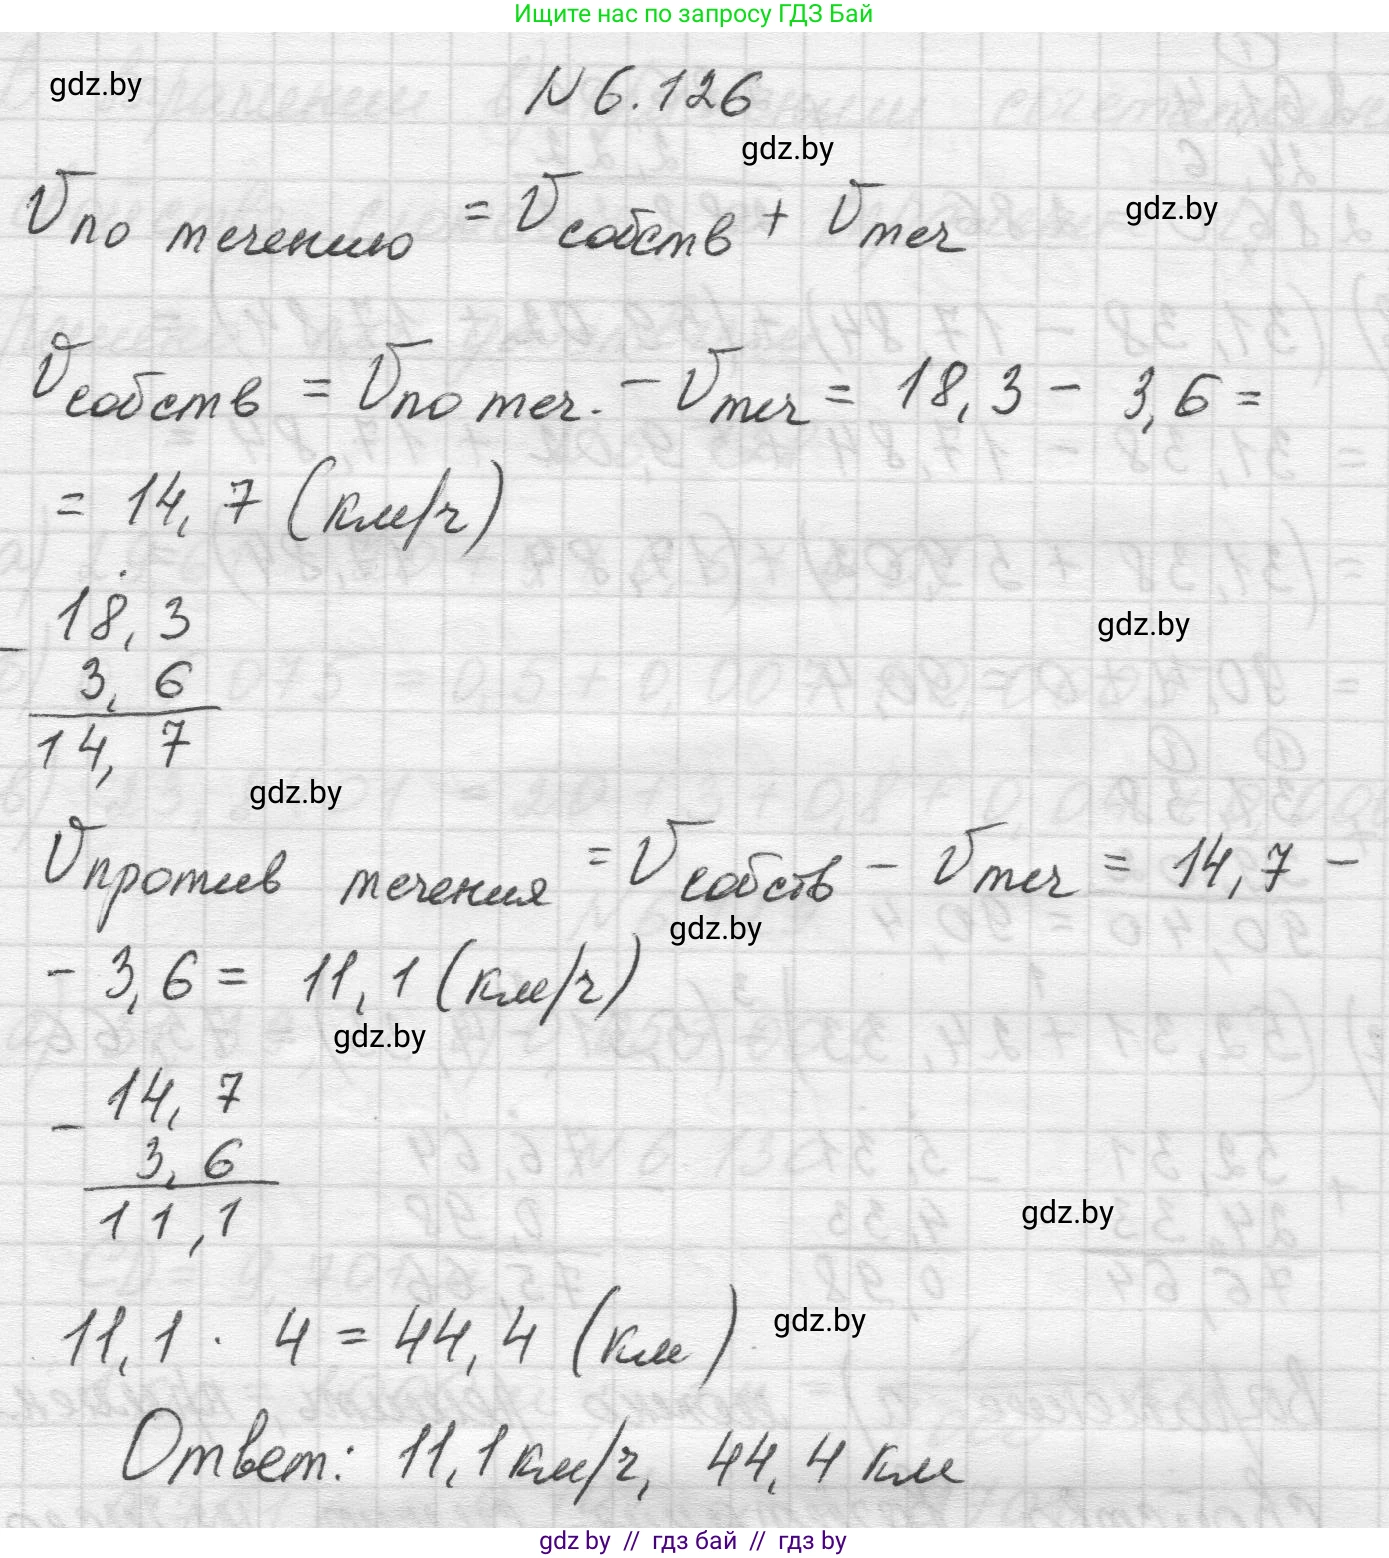 Ищите нас по запросу ГДЗ Бай
gdz.by
N 6.126
gdz.by
gdz.by
Vпо течению = Vсобств + Vтеч
Vсобств = Vпо теч. - Vтеч = 18,3 - 3,6 =
= 14,7 (км/ч)
18,3
gdz.by
- 3,6
14,7
gdz.by
Vпротив течения = Vсобств - Vтеч = 14,7 -
gdz.by
- 3,6 = 11,1 (км/ч)
gdz.by
14,7
- 3,6
11,1
gdz.by
11,1 · 4 = 44,4 (км)
gdz.by
Ответ: 11,1 км/ч, 44,4 км
gdz by // гдз бай // гдз by